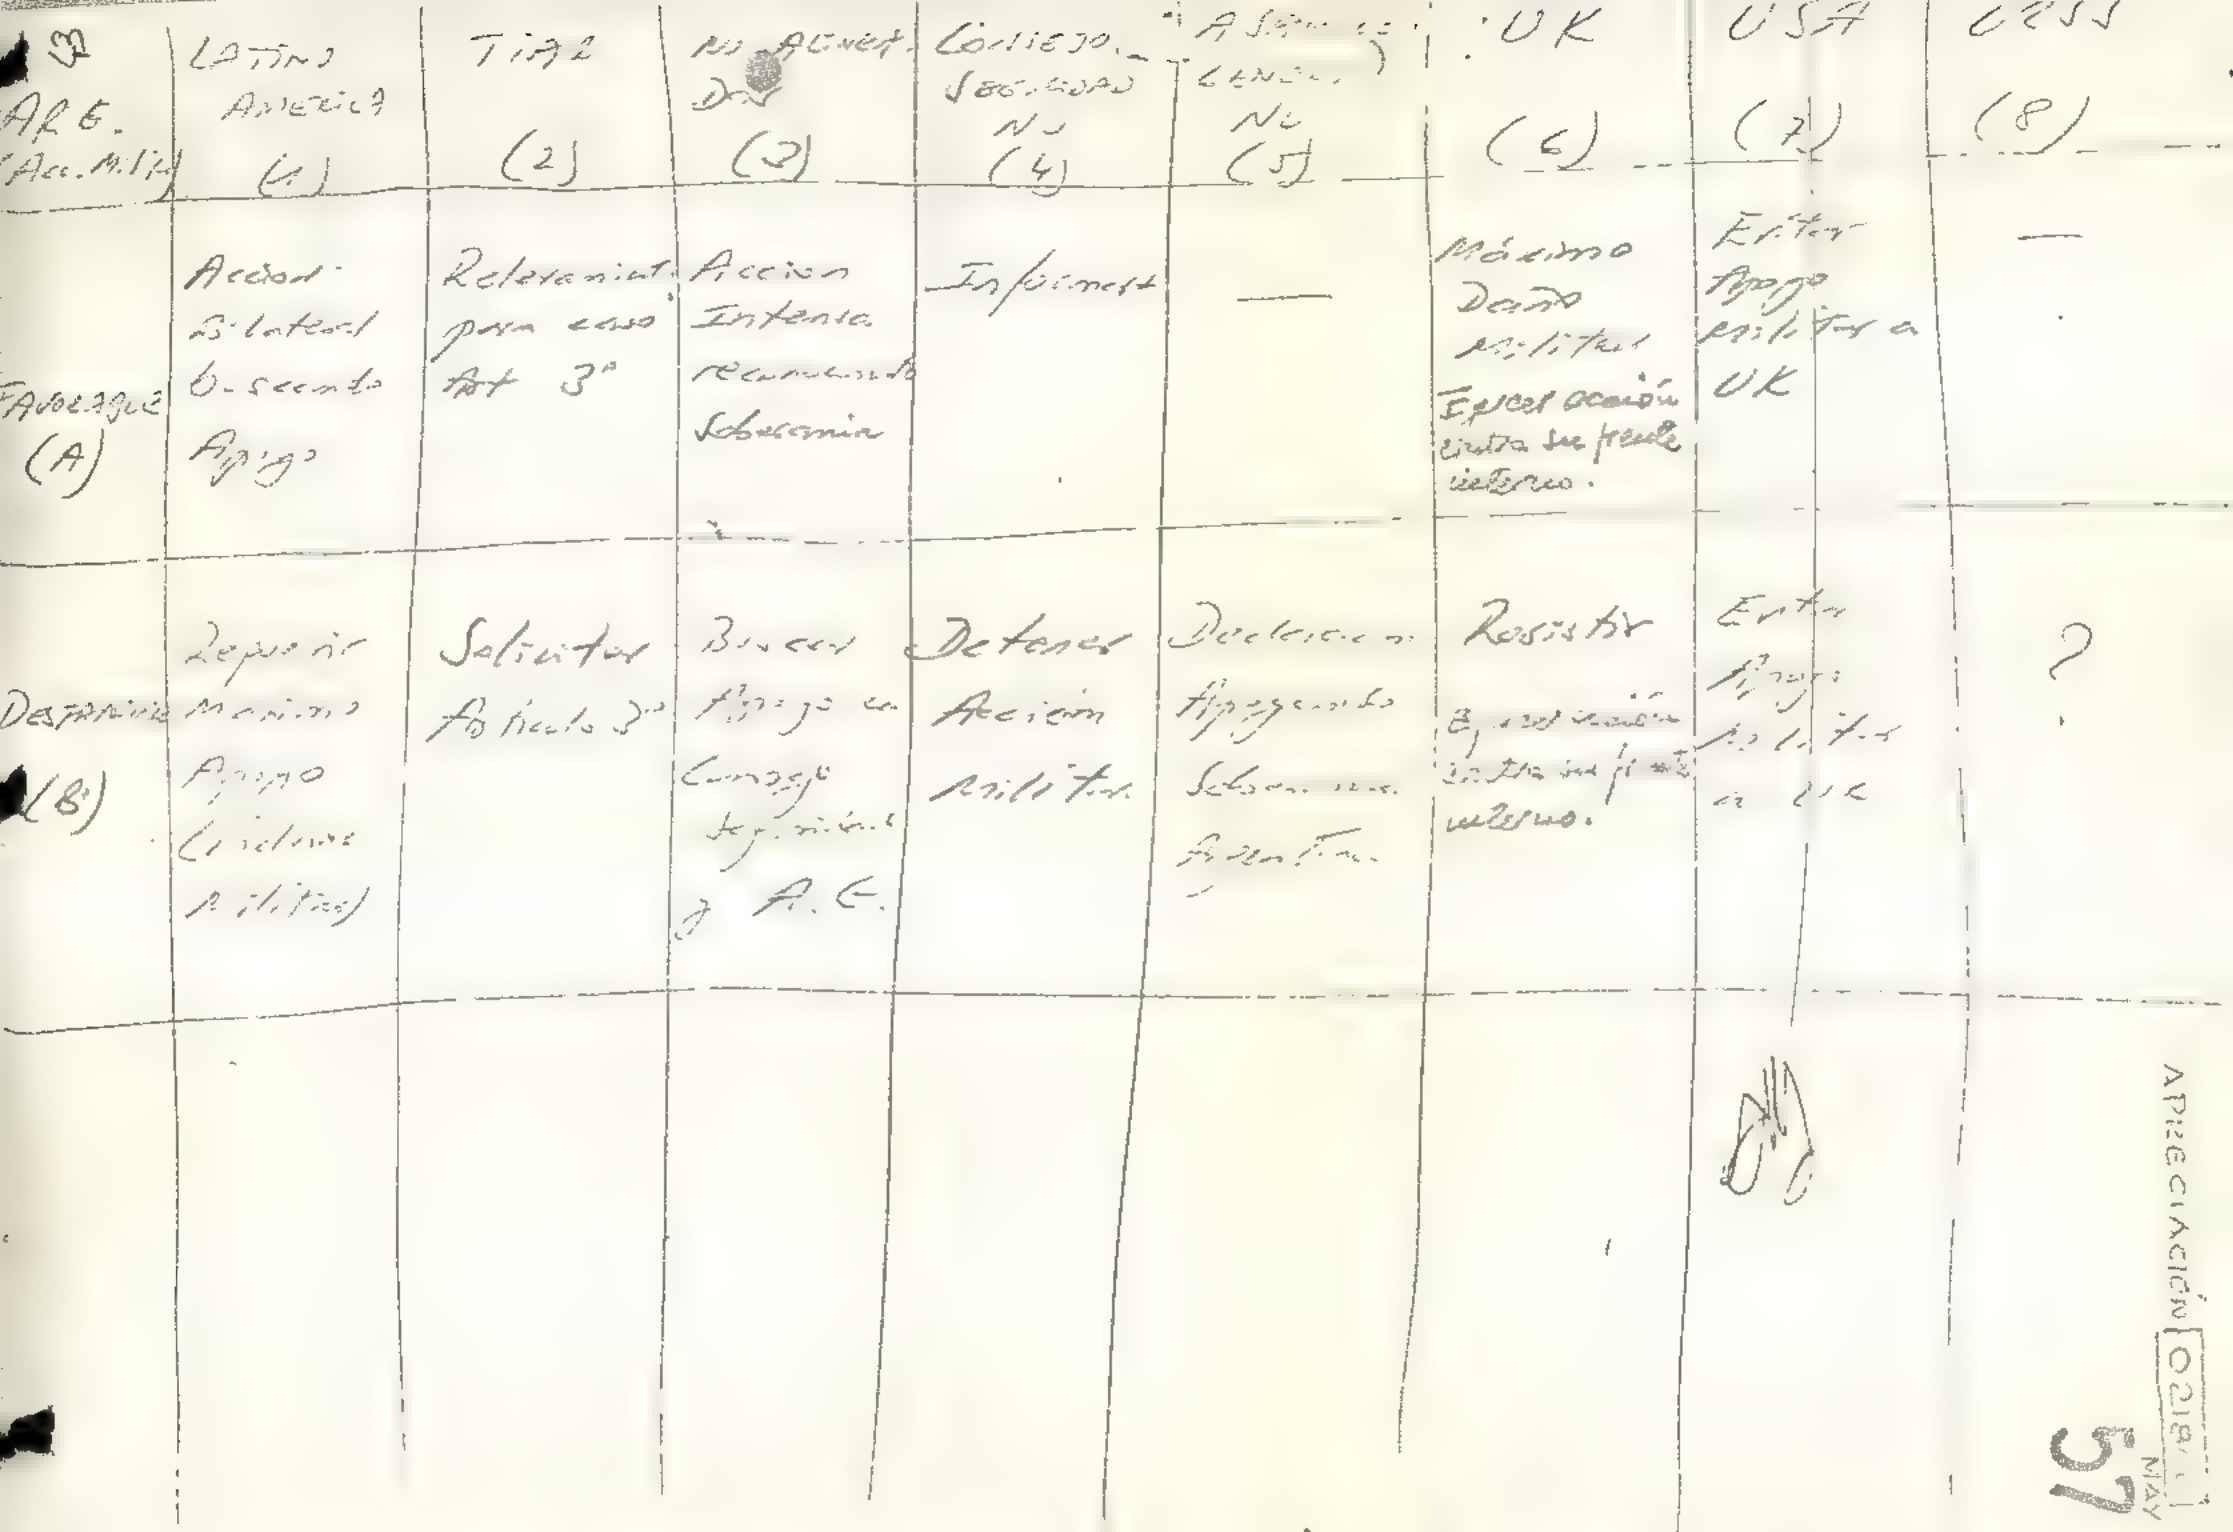 ARG.
(Acc. Milit)
LATINO
AMERICA
(1)
TIAR
(2)
NO ALINEA
DOS
(3)
CONSEJO
SEGURIDAD
NU
(4)
GENERAL
NU
(5)
UK
(6)
USA
(7)
URSS
(8)
FAVORABLE
(A)
Accion
Bilateral
buscando
Apoyo
Relevamient.
para caso
Art 3º
Accion
Intensa
recurriendo
Soberania
Informar
—
Máximo
Daño
Militar
Ejercer acción
contra su frente
interno.
Evitar
Apoyo
Militar a
UK
—
(B)
Requerir
Maximo
Apoyo
(incluso
Militar)
Solicitar
Articulo 3º
Buscar
Apoyo en
Consejo
Seguridad
y A. G.
Detener
Acción
Militar
Declaracion
Apoyando
Soberania
Argentina
Resistir
Ejercer acción
contra su frente
interno.
Evitar
Apoyo
Militar
a UK
?
APRECIACIÓN
0218
MAY
57